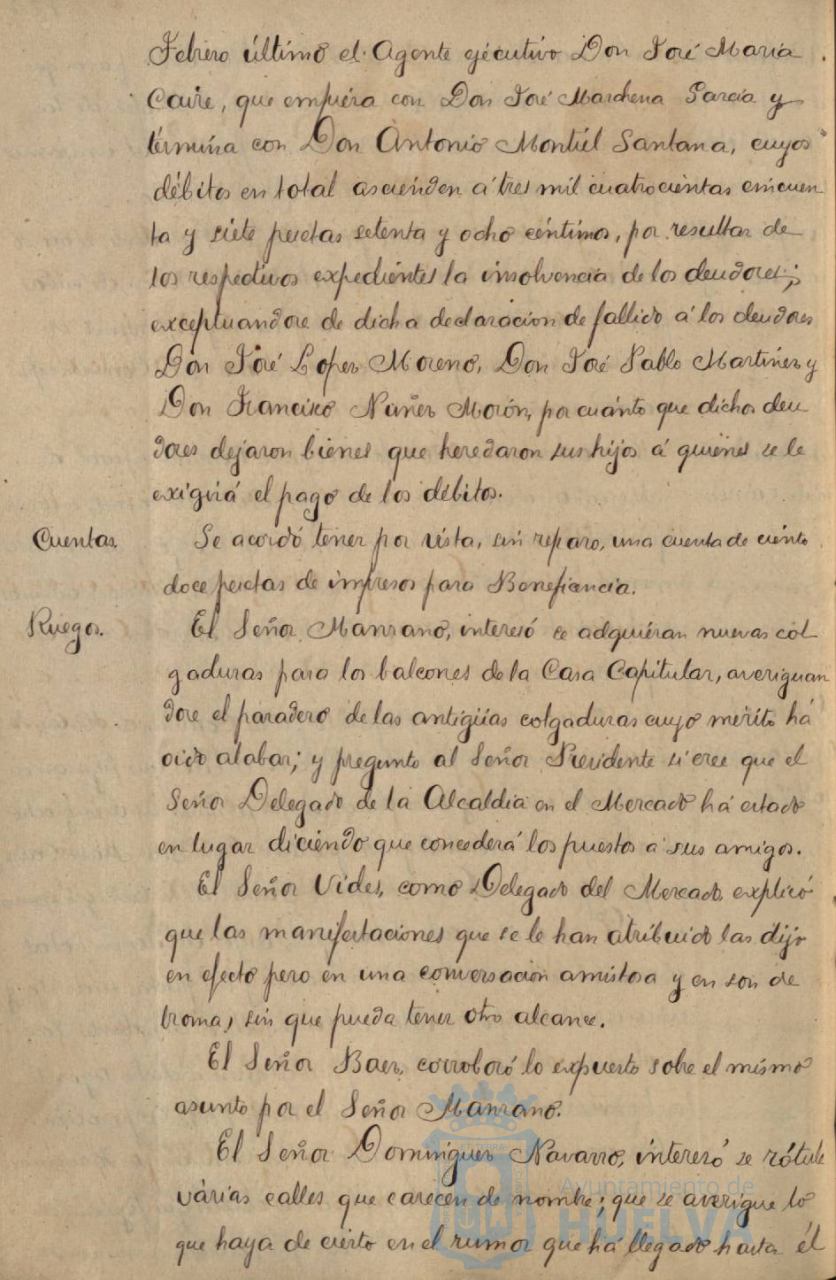 Febrero último el Agente ejecutivo Don José María
Caire, que empiéra con Don José Marchena García y
términa con Don Antonio Montiél Santana, cuyos
débitos en total ascienden á tres mil cuatrocientas cincuen
ta y siete pesetas setenta y ocho céntimos, por resultar de
los respectivos expedientes la insolvencia de los deudores;
exceptuandose de dicha declaracion de fallido á los deudores
Don José Lopez Moreno, Don José Pablo Martinez y
Don Francisco Nuñez Morón, por cuánto que dichos deu
dores dejaron bienes que heredaron sus hijos á quienes se le
exigirá el pago de los débitos.
Cuentas. Se acordó tener por vista, sin reparo, una cuenta de ciento
doce pesetas de impresos para Beneficencia.
Ruegos. El Señor Manzano, interesó se adquiéran nuevas col
gaduras para los balcones de la Casa Capitular, averiguan
dose el paradero de las antigüas colgaduras cuyo mérito há
oido alabar; y pregunto al Señor Presidente si cree que el
Señor Delegado de la Alcaldia en el Mercado há estado
en lugar diciéndo que concederá los puestos á sus amigos.
El Señor Vides, como Delegado del Mercado, explicó
que las manifestaciones que se le han atribuido las dijo
en efecto pero en una conversacion amistosa y en son de
broma, sin que pueda tener otro alcance.
El Señor Baez, corroboró lo expuesto sobre el mismo
asunto por el Señor Manzano.
El Señor Dominguez Navarro, interesó se rótule
várias calles que carecen de nombre; que se averigüe lo
que haya de cierto en el rumor que há llegado hasta él
Ayuntamiento de
HUELVA